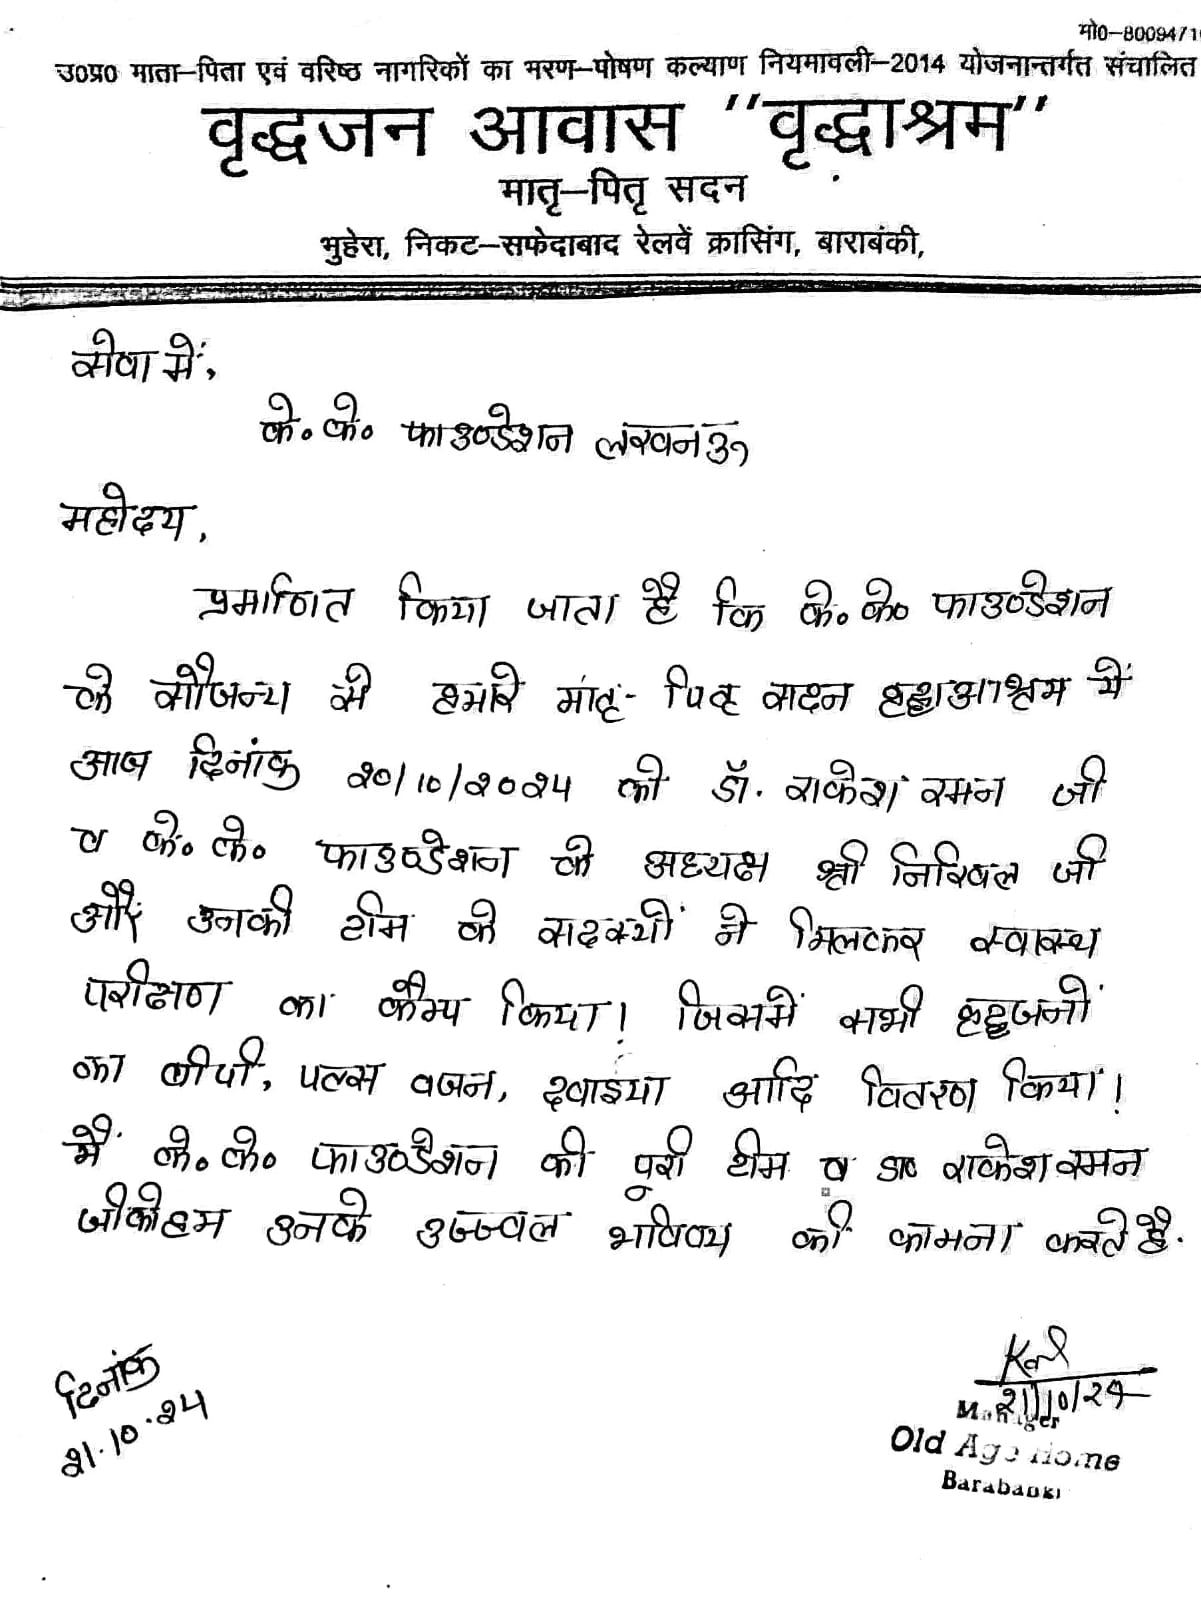 मो0-8009471
उ०प्र० माता-पिता एवं वरिष्ठ नागरिकों का भरण-पोषण कल्याण नियमावली-2014 योजनान्तर्गत संचालित
वृद्धजन आवास "वृद्धाश्रम"
मातृ-पितृ सदन
भुहेरा, निकट-सफेदाबाद रेलवें क्रासिंग, बाराबंकी,
सेवा में,
के. के. फाउण्डेशन लखनऊ
महोदय,
प्रमाणित किया जाता है कि के. के० फाउण्डेशन
के सौजन्य से हमारे मातृ- पितृ सदन वृद्धाआश्रम में
आज दिनांक २०/१०/२०२४ को डॉ. राकेश रमन जी
व के. के. फाउण्डेशन के अध्यक्ष श्री निखिल जी
और उनकी टीम के सदस्यों ने मिलकर स्वास्थ्य
परीक्षण का कैम्प किया! जिसमें सभी वृद्धजनों
का बीपी, पल्स वजन, दवाइया आदि वितरण किया!
मैं के. के. फाउण्डेशन की पूरी टीम व डा० राकेश रमन
जीकोहम उनके उज्ज्वल भविष्य की कामना करते है.
दिनांक
२१.१०.२४
21/10/24
Manager
Old Age Home
Barabanki